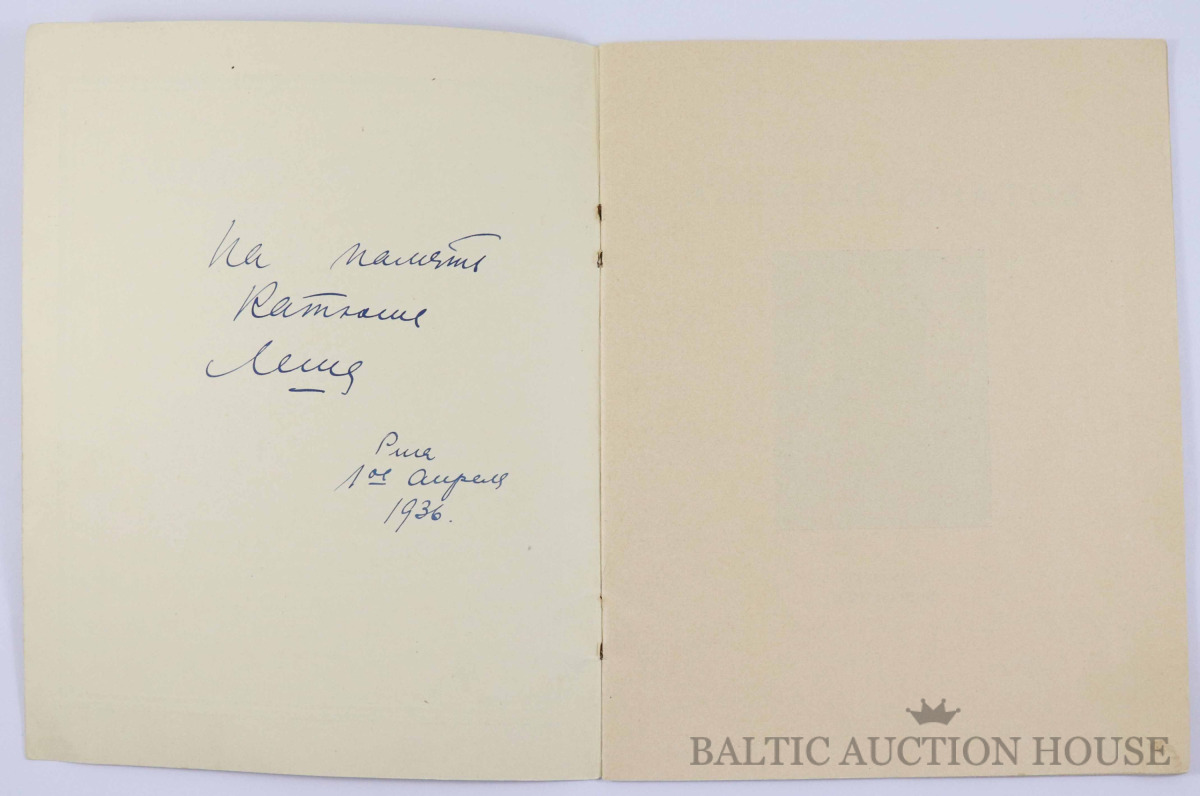 На память
Катюше
Леша
Рига
1ое апреля
1936.
BALTIC AUCTION HOUSE